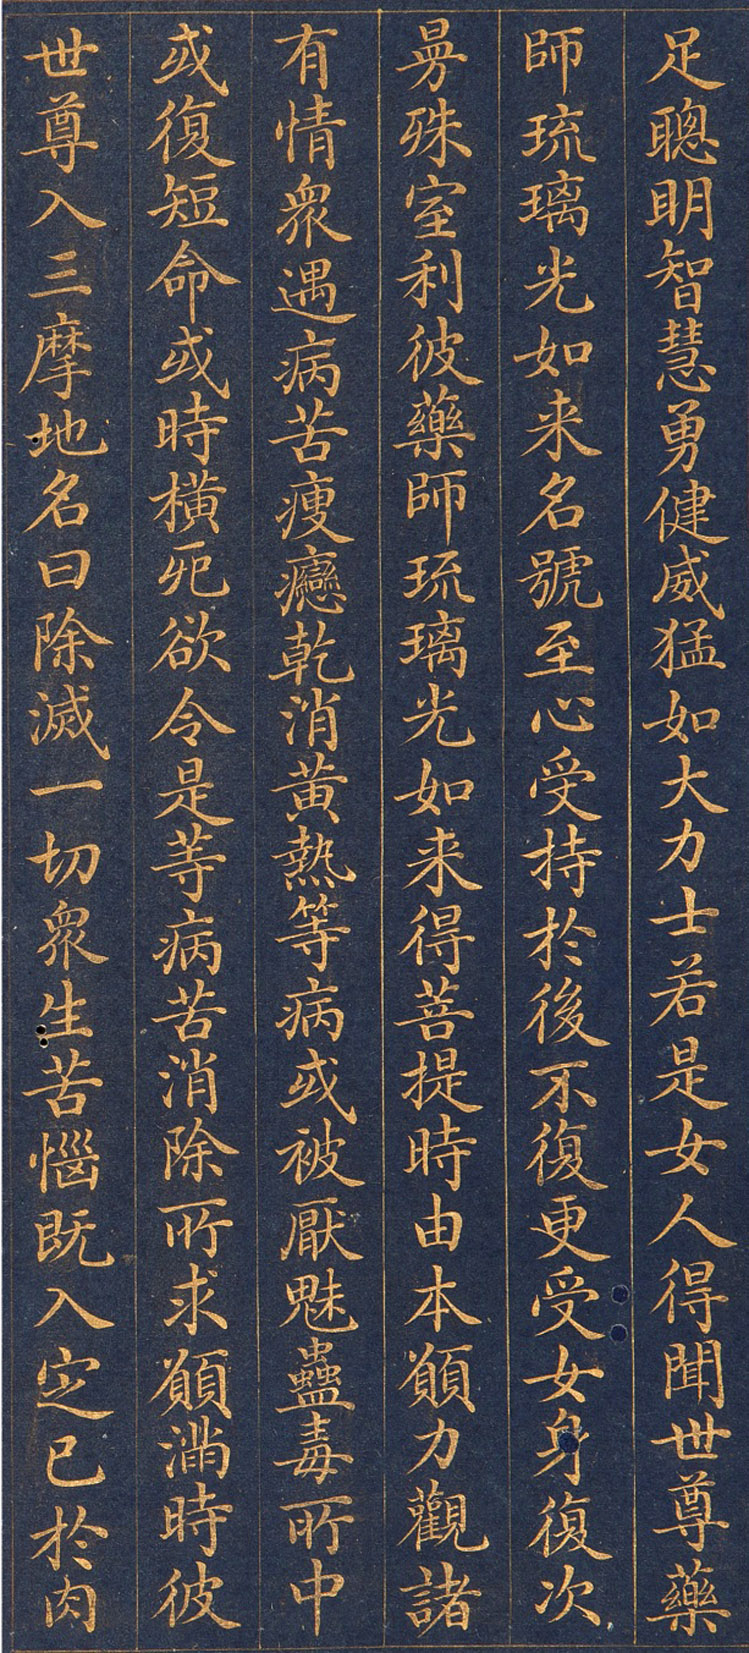 足聰明智慧勇健威猛如大力士若是女人得聞世尊藥
師琉璃光如来名號至心受持於後不復更受女身復次
曼殊室利彼藥師琉璃光如来得菩提時由本願力觀諸
有情衆遇病苦瘦癭乾消黃熱等病或被厭魅蠱毒所中
或復短命或時橫死欲令是等病苦消除所求願滿時彼
世尊入三摩地名曰除滅一切衆生苦惱既入定已於肉